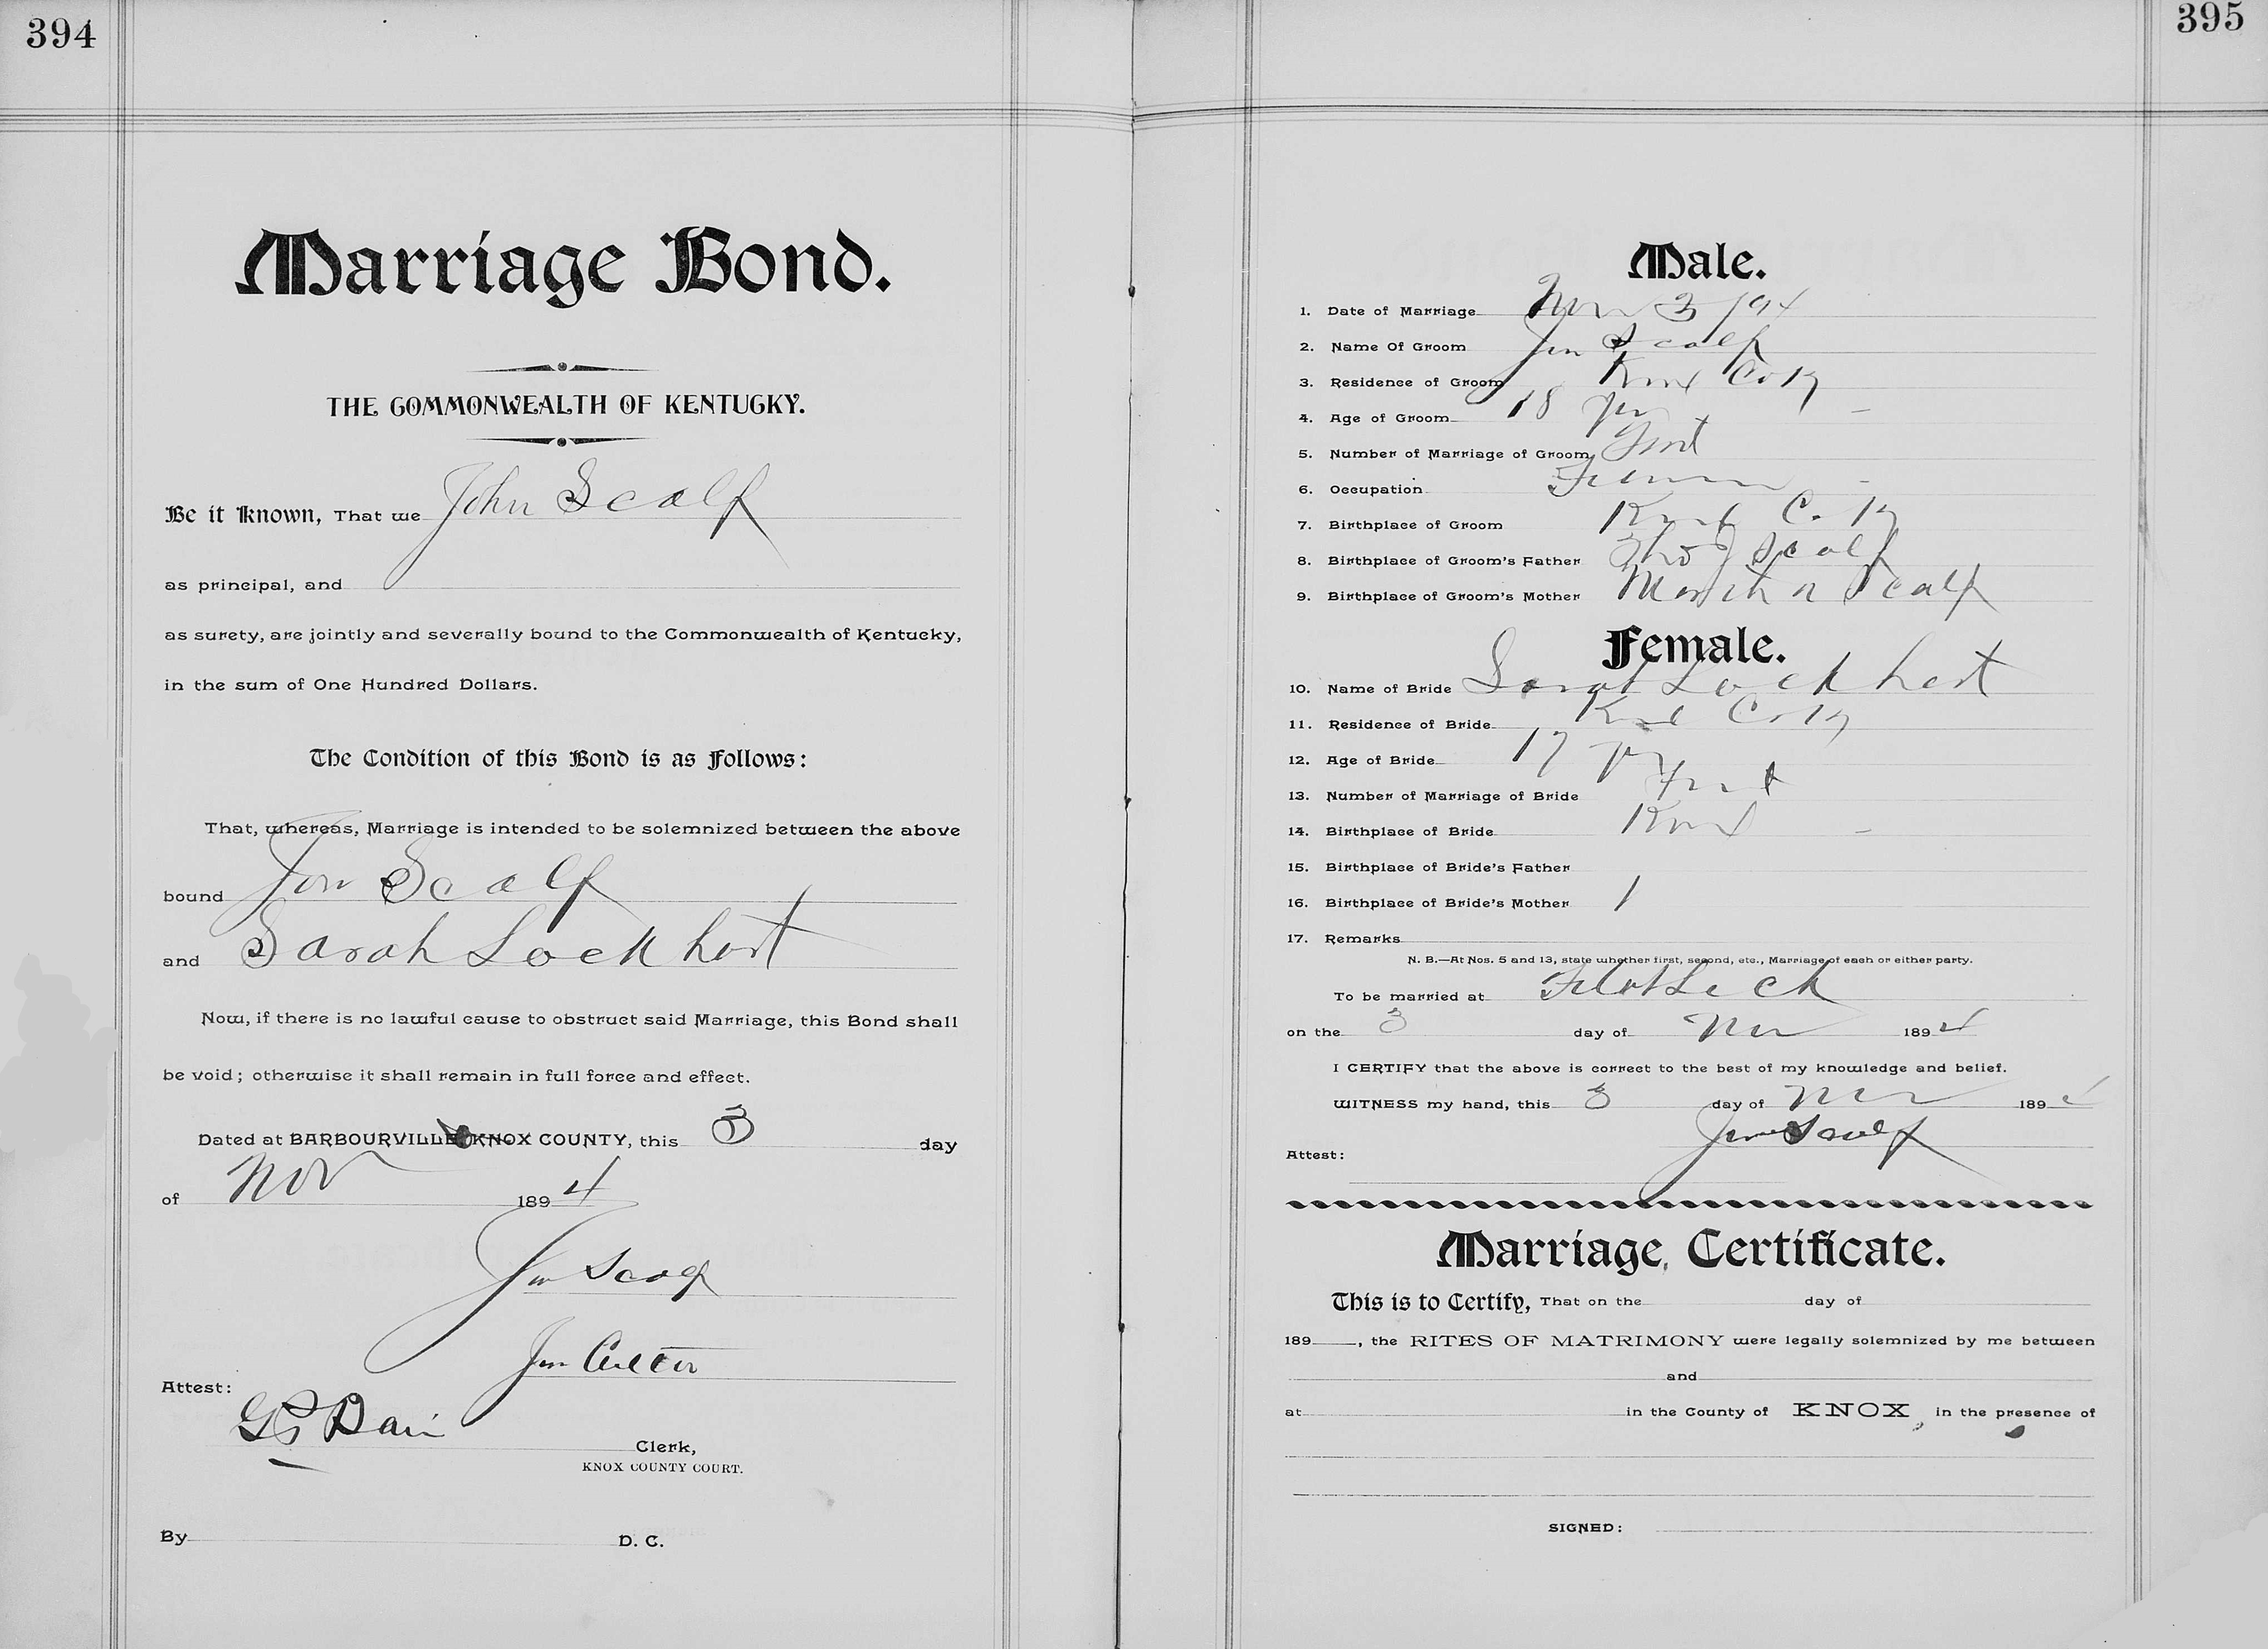 394
Marriage Bond.
THE COMMONWEALTH OF KENTUCKY.
Be it Known, That we John Scalf
as principal, and
as surety, are jointly and severally bound to the Commonwealth of Kentucky,
in the sum of One Hundred Dollars.
The Condition of this Bond is as Follows:
That, whereas, Marriage is intended to be solemnized between the above
bound Jon Scalf
and Sarah Lockhart
Now, if there is no lawful cause to obstruct said Marriage, this Bond shall
be void; otherwise it shall remain in full force and effect.
Dated at BARBOURVILLE KNOX COUNTY, this 3 day
of Nov 1894
Jno Scalf
Jno
Attest:
Clerk,
KNOX COUNTY COURT.
By D. C.
395
Male.
1. Date of Marriage Nov 3/94
2. Name Of Groom Jno Scalf
3. Residence of Groom Knox Co Ky
4. Age of Groom 18 yrs
5. Number of Marriage of Groom First
6. Occupation Farmer
7. Birthplace of Groom Knox Co Ky
8. Birthplace of Groom's Father Thos J Scalf
9. Birthplace of Groom's Mother Martha Scalf
Female.
10. Name of Bride Sarah Lockhart
11. Residence of Bride Knox Co Ky
12. Age of Bride 17 yrs
13. Number of Marriage of Bride First
14. Birthplace of Bride Knox
15. Birthplace of Bride's Father
16. Birthplace of Bride's Mother
17. Remarks
N. B.—At Nos. 5 and 13, state whether first, second, etc., Marriage of each or either party.
To be married at Flat Lick
on the 3 day of Nov 1894
I CERTIFY that the above is correct to the best of my knowledge and belief.
WITNESS my hand, this 3 day of Nov 1894
Jno Scalf
Attest:
Marriage Certificate.
This is to Certify, That on the day of
189 , the RITES OF MATRIMONY were legally solemnized by me between
and
at in the County of KNOX, in the presence of
SIGNED: